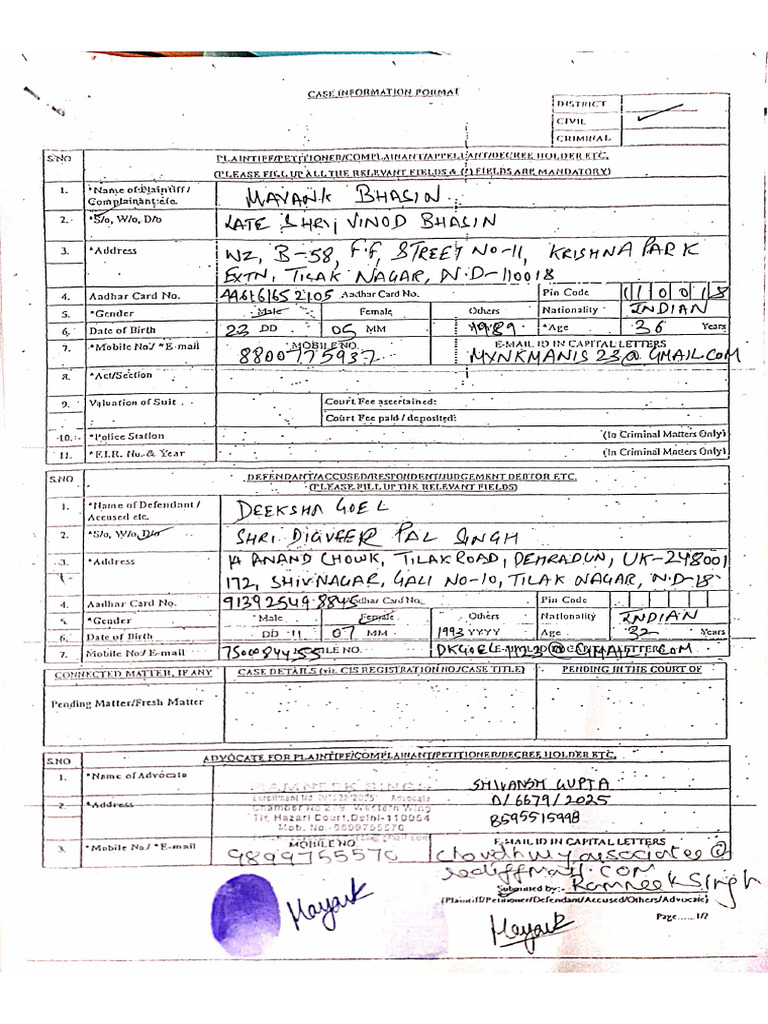 CASE INFORMATION FORMAT
DISTRICT
CIVIL
CRIMINAL
S.NO PLAINTIFF/PETITIONER/COMPLAINANT/APPELLANT/DECREE HOLDER ETC.
(PLEASE FILL UP ALL THE RELEVANT FIELDS & (*) FIELDS ARE MANDATORY)
1. *Name of Plaintiff / Complainant etc. MAYANK BHASIN
2. *S/o, W/o, D/o LATE SHRI VINOD BHASIN
3. *Address WZ, B-58, F.F, STREET NO-11, KRISHNA PARK
EXTN, TILAK NAGAR, N.D-110018
4. Aadhar Card No. Aadhar Card No. Pin Code 110018
5. *Gender Male Female Others Nationality INDIAN
6. Date of Birth 23 DD 05 MM 1989 *Age 36 Years
7. *Mobile No./ *E-mail MOBILE NO. 8800775937 E-MAIL ID IN CAPITAL LETTERS MYNKMANIS23@GMAIL.COM
8. *Act/Section
9. Valuation of Suit Court Fee ascertained:
Court Fee paid / deposited:
10. *Police Station (In Criminal Matters Only)
11. *F.I.R. No. & Year (In Criminal Matters Only)
S.NO DEFENDANT/ACCUSED/RESPONDENT/JUDGEMENT DEBTOR ETC.
(PLEASE FILL UP THE RELEVANT FIELDS)
1. *Name of Defendant / Accused etc. DEEKSHA GOEL
2. *S/o, W/o D/o SHRI DIGVEER PAL SINGH
3. *Address 14 ANAND CHOWK, TILAK ROAD, DEHRADUN, UK-248001
172, SHIV NAGAR, GALI NO-10, TILAK NAGAR, N.D-18
4. Aadhar Card No. 9139 2549 8845 Aadhar Card No. Pin Code
5. *Gender Male Female Others Nationality INDIAN
6. Date of Birth DD 11 07 MM 1993 YYYY Age 32 Years
7. Mobile No./ E-mail MOBILE NO. E-MAIL ID IN CAPITAL LETTERS
CONNECTED MATTER, IF ANY CASE DETAILS (viz. CIS REGISTRATION NO./CASE TITLE) PENDING IN THE COURT OF
Pending Matter/Fresh Matter
S.NO ADVOCATE FOR PLAINTIFF/COMPLAINANT/PETITIONER/DECREE HOLDER ETC.
1. *Name of Advocate RAMNEEK SINGH SHIVANSH GUPTA
Advocate
2. *Address Chamber No 279, Western Wing D/6679/2025
Tis Hazari Court, Delhi-110054 8595515998
Mob. No.-9899755570
3. *Mobile No./ *E-mail MOBILE NO 9899755570 E-MAIL ID IN CAPITAL LETTERS
rediffmail.com
Submitted by:- Ramneek Singh
(Plaintiff/Petitioner/Defendant/Accused/Others/Advocate)
Mayank
Mayank
Page......1/2